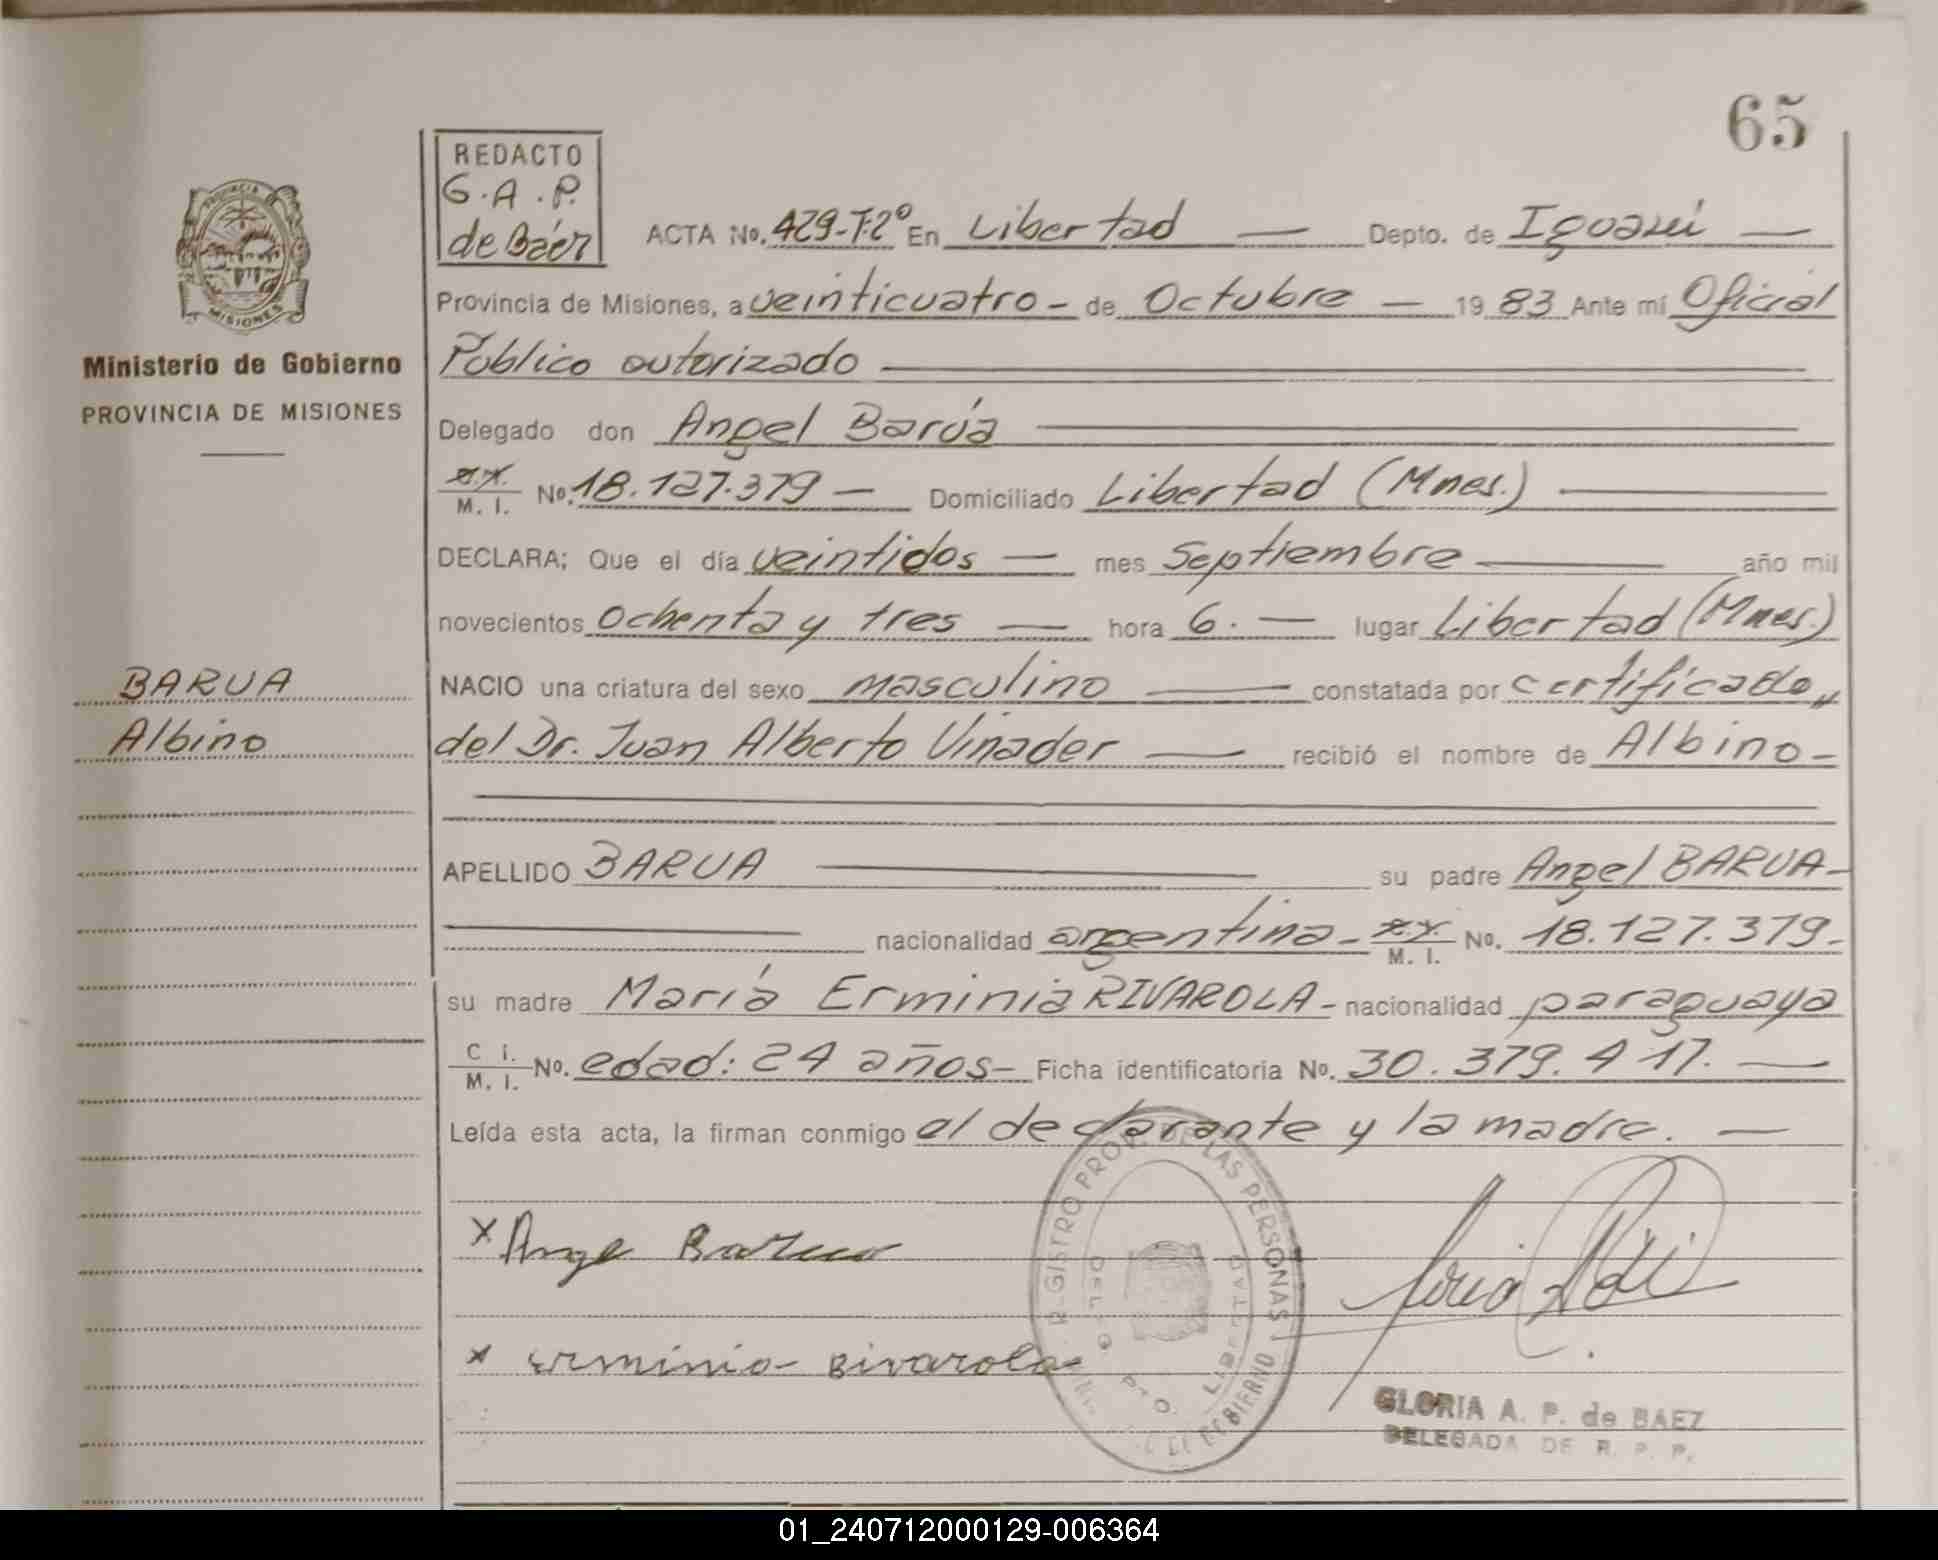 65
PROVINCIA
MISIONES
Ministerio de Gobierno
PROVINCIA DE MISIONES
REDACTO
G.A.P.
de Báez
ACTA No. 429-T:2º En Libertad — Depto. de Iguazú —
Provincia de Misiones, a veinticuatro - de Octubre — 1983 Ante mí Oficial
Público autorizado
Delegado don Angel Barúa
M. I. No. 18.127.379 — Domiciliado Libertad (Mnes.)
DECLARA; Que el día veintidos — mes Septiembre — año mil
novecientos ochenta y tres — hora 6. — lugar Libertad (Mnes.)
BARUA
Albino
NACIO una criatura del sexo masculino — constatada por certificado,,
del Dr. Juan Alberto Viñader — recibió el nombre de Albino -
APELLIDO BARUA — su padre Angel BARUA -
nacionalidad argentina - M. I. No. 18.127.379.-
su madre María Erminia RIVAROLA - nacionalidad paraguaya
C I.
M. I. No. edad: 24 años - Ficha identificatoria No. 30.379.417. —
Leída esta acta, la firman conmigo el declarante y la madre. —
x Ange Barua
x erminia Rivarola
REGISTRO PROV. DE LAS PERSONAS
DELEG
LIBERTAD
PTO.
DE GOBIERNO
GLORIA A. P. de BAEZ
DELEGADA DE R. P. P.
01_240712000129-006364